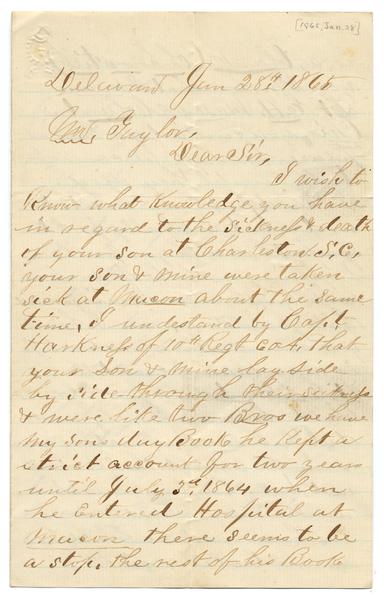 [1865, Jan. 28]
Delavan Jan 28th 1865
Mr. Taylor,
Dear Sir,
I wish to
Know what Knowledge you have
in regard to the sickness & death
of your son at Charleston S.C,
your son & mine were taken
sick at Macon about the same
time, I undestand by Capt
Harkness of 10th Regt Co A, that
your Son & Mine lay side
by side through their sickness
& were like two Bros we have
my sons day Book he Kept a
strict account for two years
until July 3d, 1864 when
he Entered Hospital at
Macon there seems to be
a stop, the rest of his Book